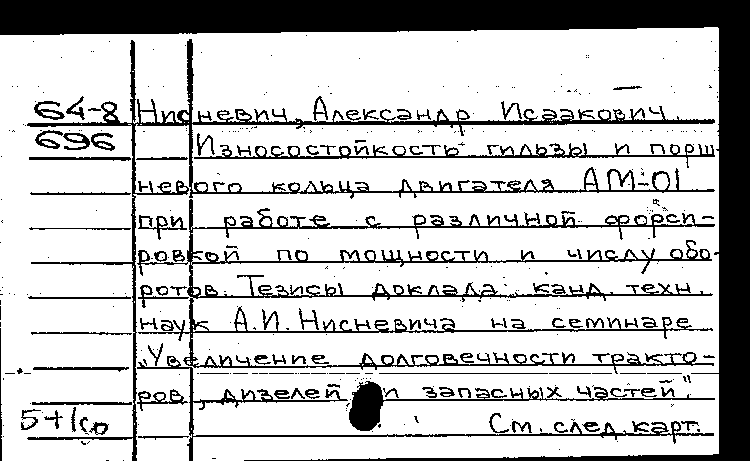 64-8 Нисневич, Александр Исаакович.
696 Износостойкость гильзы и порш-
невого кольца двигателя АМ-01
при работе с различной форси-
ровкой по мощности и числу обо-
ротов. Тезисы доклада канд. техн.
наук А.И. Нисневича на семинаре
„Увеличение долговечности тракто-
ров, дизелей и запасных частей".
См. след. карт.